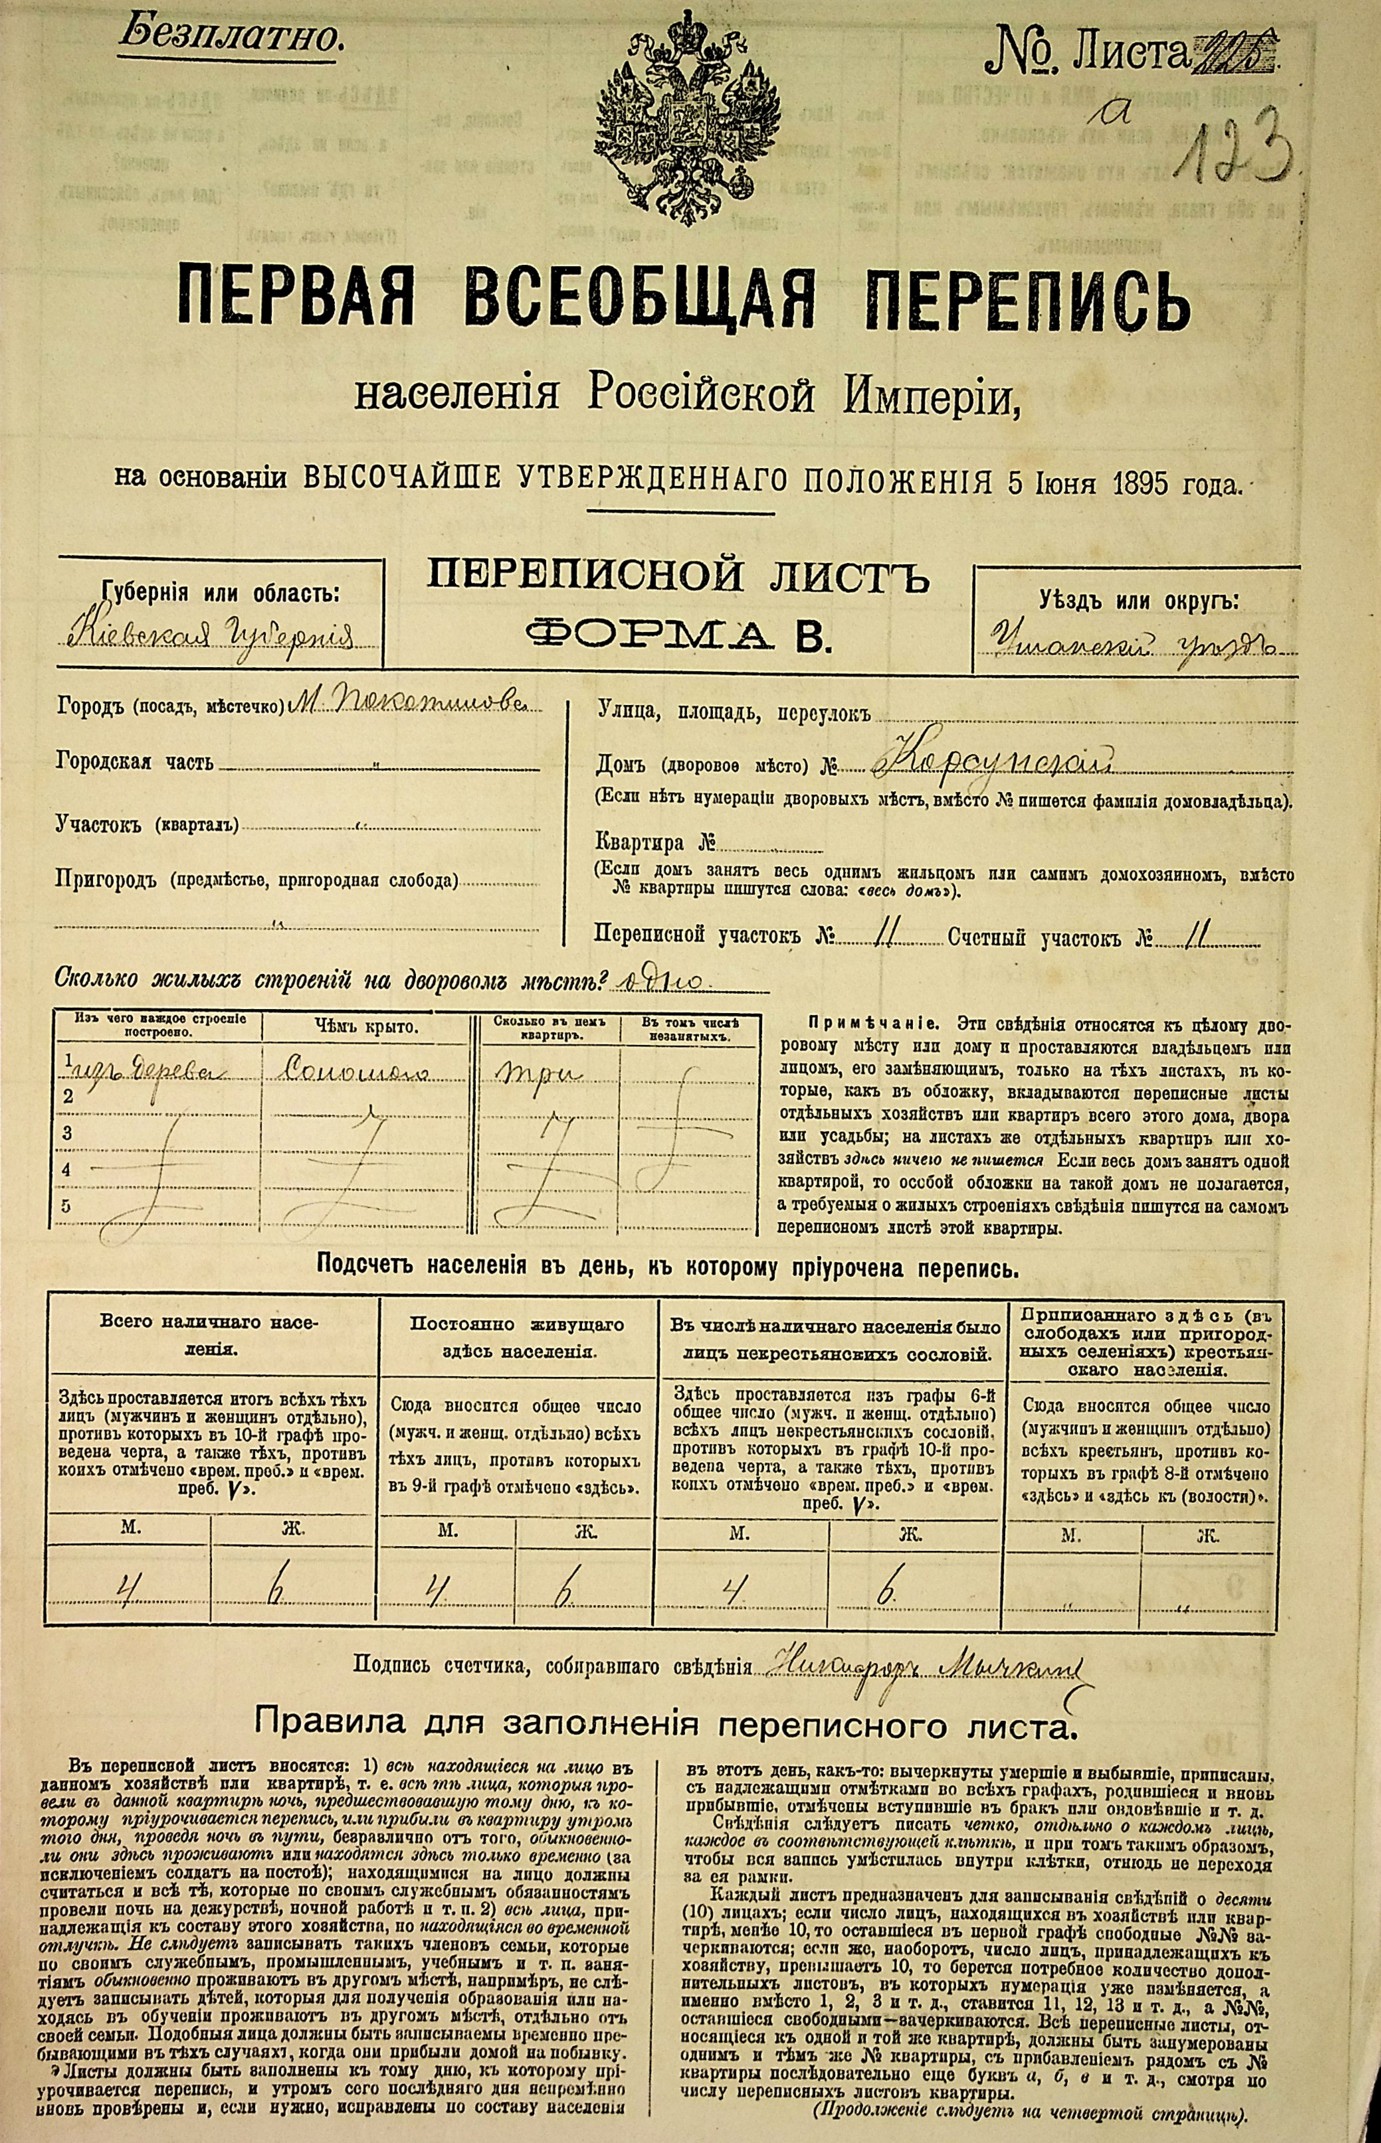 Безплатно.
№. Листа 225.
а
123
ПЕРВАЯ ВСЕОБЩАЯ ПЕРЕПИСЬ
населенія Россійской Имперіи,
на основаніи ВЫСОЧАЙШЕ УТВЕРЖДЕННАГО ПОЛОЖЕНІЯ 5 Іюня 1895 года.
ПЕРЕПИСНОЙ ЛИСТЪ
ФОРМА В.
Губернія или область:
Кіевская Губернія
Уѣздъ или округъ:
Уманскій уѣздъ
Городъ (посадъ, мѣстечко) М. Покотилова
Городская часть "
Участокъ (кварталъ) "
Пригородъ (предмѣстье, пригородная слобода)
"
Улица, площадь, переулокъ
Домъ (дворовое мѣсто) № Корсунскій
(Если нѣтъ нумераціи дворовыхъ мѣстъ, вмѣсто № пишется фамилія домовладѣльца).
Квартира №
(Если домъ занятъ весь однимъ жильцомъ или самимъ домохозяиномъ, вмѣсто
№ квартиры пишутся слова: «весь домъ»).
Переписной участокъ № 11 Счетный участокъ № 11
Сколько жилыхъ строеній на дворовомъ мѣстѣ? одно.
Изъ чего каждое строеніе построено.
Чѣмъ крыто.
Сколько въ немъ квартиръ.
Въ томъ числѣ незанятыхъ.
1 изъ дерева Соломою три
2
3
4
5
Примѣчаніе. Эти свѣдѣнія относятся къ цѣлому дво-
ровому мѣсту или дому и проставляются владѣльцемъ или
лицомъ, его замѣняющимъ, только на тѣхъ листахъ, въ ко-
торые, какъ въ обложку, вкладываются переписные листы
отдѣльныхъ хозяйствъ или квартиръ всего этого дома, двора
или усадьбы; на листахъ же отдѣльныхъ квартиръ или хо-
зяйствъ здѣсь ничего не пишется Если весь домъ занятъ одной
квартирой, то особой обложки на такой домъ не полагается,
а требуемыя о жилыхъ строеніяхъ свѣдѣнія пишутся на самомъ
переписномъ листѣ этой квартиры.
Подсчетъ населенія въ день, къ которому пріурочена перепись.
Всего наличнаго насе-
ленія.
Здѣсь проставляется итогъ всѣхъ тѣхъ
лицъ (мужчинъ и женщинъ отдѣльно),
противъ которыхъ въ 10-й графѣ про-
ведена черта, а также тѣхъ, противъ
коихъ отмѣчено «врем. преб.» и «врем.
преб. V».
Постоянно живущаго
здѣсь населенія.
Сюда вносится общее число
(мужч. и женщ. отдѣльно) всѣхъ
тѣхъ лицъ, противъ которыхъ
въ 9-й графѣ отмѣчено «здѣсь».
Въ числѣ наличнаго населенія было
лицъ некрестьянскихъ сословій.
Здѣсь проставляется изъ графы 6-й
общее число (мужч. и женщ. отдѣльно)
всѣхъ лицъ некрестьянскихъ сословій,
противъ которыхъ въ графѣ 10-й про-
ведена черта, а также тѣхъ, противъ
коихъ отмѣчено «врем. преб.» и «врем.
преб. V».
Приписаннаго здѣсь (въ
слободахъ или пригород-
ныхъ селеніяхъ) крестьян-
скаго населенія.
Сюда вносится общее число
(мужчинъ и женщинъ отдѣльно)
всѣхъ крестьянъ, противъ ко-
торыхъ въ графѣ 8-й отмѣчено
«здѣсь» и «здѣсь къ (волости)».
М. Ж. М. Ж. М. Ж. М. Ж.
4 6 4 6. 4 6. " "
Подпись счетчика, собиравшаго свѣдѣнія Никифоръ Мычкин
Правила для заполненія переписного листа.
Въ переписной листъ вносятся: 1) всѣ находящіеся на лицо въ
данномъ хозяйствѣ или квартирѣ, т. е. всѣ тѣ лица, которыя про-
вели въ данной квартирѣ ночь, предшествовавшую тому дню, къ ко-
торому пріурочивается перепись, или прибыли въ квартиру утромъ
того дня, проведя ночь въ пути, безразлично отъ того, обыкновенно-
ли они здѣсь проживаютъ или находятся здѣсь только временно (за
исключеніемъ солдатъ на постоѣ); находящимися на лицо должны
считаться и всѣ тѣ, которые по своимъ служебнымъ обязанностямъ
провели ночь на дежурствѣ, ночной работѣ и т. п. 2) всѣ лица, при-
надлежащія къ составу этого хозяйства, но находящіяся во временной
отлучкѣ. Не слѣдуетъ записывать такихъ членовъ семьи, которые
по своимъ служебнымъ, промышленнымъ, учебнымъ и т. п. заня-
тіямъ обыкновенно проживаютъ въ другомъ мѣстѣ, напримѣръ, не слѣ-
дуетъ записывать дѣтей, которыя для полученія образованія или на-
ходясь въ обученіи проживаютъ въ другомъ мѣстѣ, отдѣльно отъ
своей семьи. Подобныя лица должны быть записываемы временно пре-
бывающими въ тѣхъ случаяхъ, когда они прибыли домой на побывку.
Листы должны быть заполнены къ тому дню, къ которому прі-
урочивается перепись, и утромъ сего послѣдняго дня непремѣнно
вновь провѣрены и, если нужно, исправлены по составу населенія
въ этотъ день, какъ-то: вычеркнуты умершіе и выбывшіе, приписаны,
съ надлежащими отмѣтками во всѣхъ графахъ, родившіеся и вновь
прибывшіе, отмѣчены вступившіе въ бракъ или овдовѣвшіе и т. д.
Свѣдѣнія слѣдуетъ писать четко, отдѣльно о каждомъ лицѣ,
каждое въ соотвѣтствующей клѣткѣ, и при томъ такимъ образомъ,
чтобы вся запись умѣстилась внутри клѣтки, отнюдь не переходя
за ея рамки.
Каждый листъ предназначенъ для записыванія свѣдѣній о десяти
(10) лицахъ; если число лицъ, находящихся въ хозяйствѣ или квар-
тирѣ, менѣе 10, то оставшіеся въ первой графѣ свободные №№ за-
черкиваются; если же, наоборотъ, число лицъ, принадлежащихъ къ
хозяйству, превышаетъ 10, то берется потребное количество допол-
нительныхъ листовъ, въ которыхъ нумерація уже измѣняется, а
именно вмѣсто 1, 2, 3 и т. д., ставится 11, 12, 13 и т. д., а №№,
оставшіеся свободными—зачеркиваются. Всѣ переписные листы, от-
носящіеся къ одной и той же квартирѣ, должны быть занумерованы
однимъ и тѣмъ же № квартиры, съ прибавленіемъ рядомъ съ №
квартиры послѣдовательно еще буквъ а, б, в и т. д., смотря по
числу переписныхъ листовъ квартиры.
(Продолженіе слѣдуетъ на четвертой страницѣ).